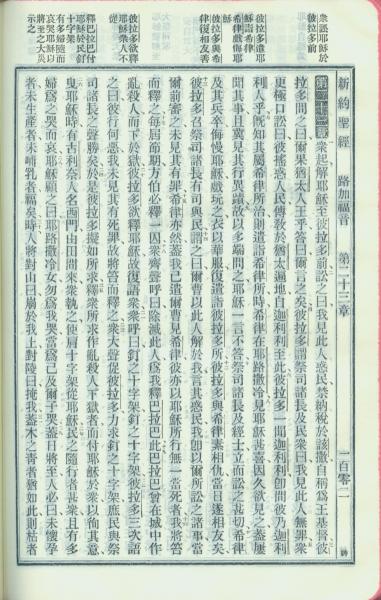 新約聖經 路加福音 第二十三章 一百零二
衆訟耶穌於
彼拉多前
彼拉多遣耶
穌詣希律
希律戲侮耶
穌
彼拉多與希
律復相友善
彼拉多欲釋
耶穌衆人不
從
釋巴拉巴付
耶穌於民釘
十字架
有多婦隨而
哀哭耶穌以
將至之大災
示之
第二十三章 衆起解耶穌至彼拉多前訟之曰我見此人惑民禁納稅於該撒自稱爲王基督彼
拉多問之曰爾果猶太人王乎答曰爾言之矣彼拉多謂祭司諸長及民衆曰我見此人無罪衆
更極口訟曰彼搖惑人民傳敎於猶太遍地自迦利利至此彼拉多一聞迦利利卽問彼乃迦利
利人乎旣知其屬希律所治則遣詣希律所時希律在耶路撒冷見耶穌甚喜因久欲見之蓋屢
聞其事且冀見其行異蹟故以多端問之耶穌一言不答祭司諸長及經士立而訟之甚切希律
及其兵卒侮慢耶穌戲玩之衣以華服復遣詣彼拉多所彼拉多與希律素相仇當日遂相友矣
彼拉多召祭司諸長有司與民謂之曰爾曹以此人解於我言其惑民我卽以爾所訟之諸事當
爾前審之未見其有罪希律亦然蓋我已遣爾曹見希律彼亦以耶穌所行無一當死者我將笞
而釋之每屆節期方伯必釋一囚衆齊聲呼曰除滅此人爲我釋巴拉巴也巴拉巴曾在城中作
亂殺人而下於獄彼拉多欲釋耶穌故復語衆衆呼曰釘之十字架釘之十字架彼拉多三次語
之曰彼行何惡我未見其有死罪故將笞而釋之衆大聲促彼拉多力求釘之十字架庶民與祭
司諸長之聲勝矣於是彼拉多擬如所求釋衆所求作亂殺人下獄者而付耶穌於衆以徇其意
曳耶穌時有古利奈人名西門由田間來衆執之使肩十字架從耶穌民之隨行者甚衆且有多
婦爲之哭而哀耶穌顧之曰耶路撒冷女勿爲我哭當爲己及爾子哭蓋日將至人必曰未懷孕
者未生產者未哺乳者福矣時人將對山曰崩於我上對陵曰掩我蓋木之靑者猶如此則枯者